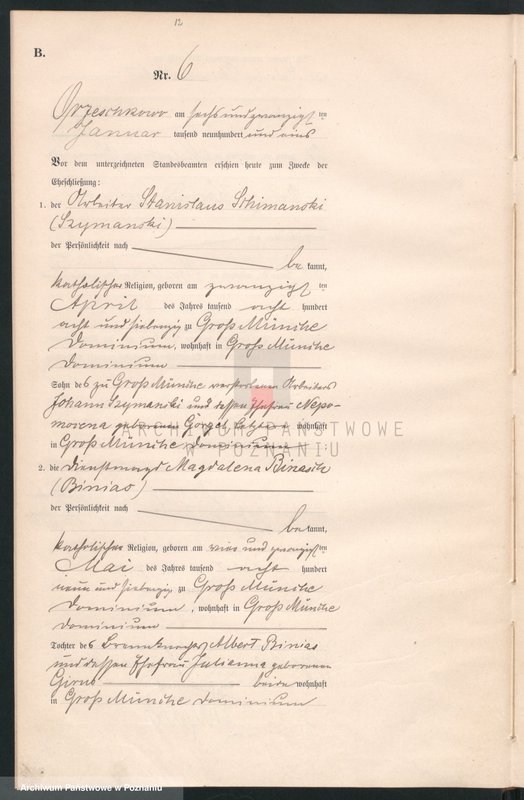 12
B.
Nr. 6
Orzeschkowo am sechsundzwanzigsten
Januar tausend neunhundert und eins
Vor dem unterzeichneten Standesbeamten erschien heute zum Zwecke der
Eheschließung:
1. der Arbeiter Stanislaus Schimanski
(Szymanski)
der Persönlichkeit nach
be kannt,
katholischer Religion, geboren am zwanzigsten
April des Jahres tausend acht hundert
acht und siebenzig zu Groß Münche
Dominium, wohnhaft in Groß Münche
Dominium
Sohn des zu Groß Münche verstorbenen Arbeiters
Johann Szymanski und dessen Ehefrau Nepo-
mocena geborenen wohnhaft
in Groß Münche Dominium
2. die Dienstmagd Magdalena Binasch
(Binias)
der Persönlichkeit nach
be kannt,
katholischer Religion, geboren am vier und zwanzigsten
Mai des Jahres tausend acht hundert
neun und siebenzig zu Groß Münche
Dominium, wohnhaft in Groß Münche
Dominium
Tochter des Albert Binias
und dessen Ehefrau Julianna geborenen
beide wohnhaft
in Groß Münche Dominium
ARCHIWUM PAŃSTWOWE
W POZNANIU
Archiwum Państwowe w Poznaniu